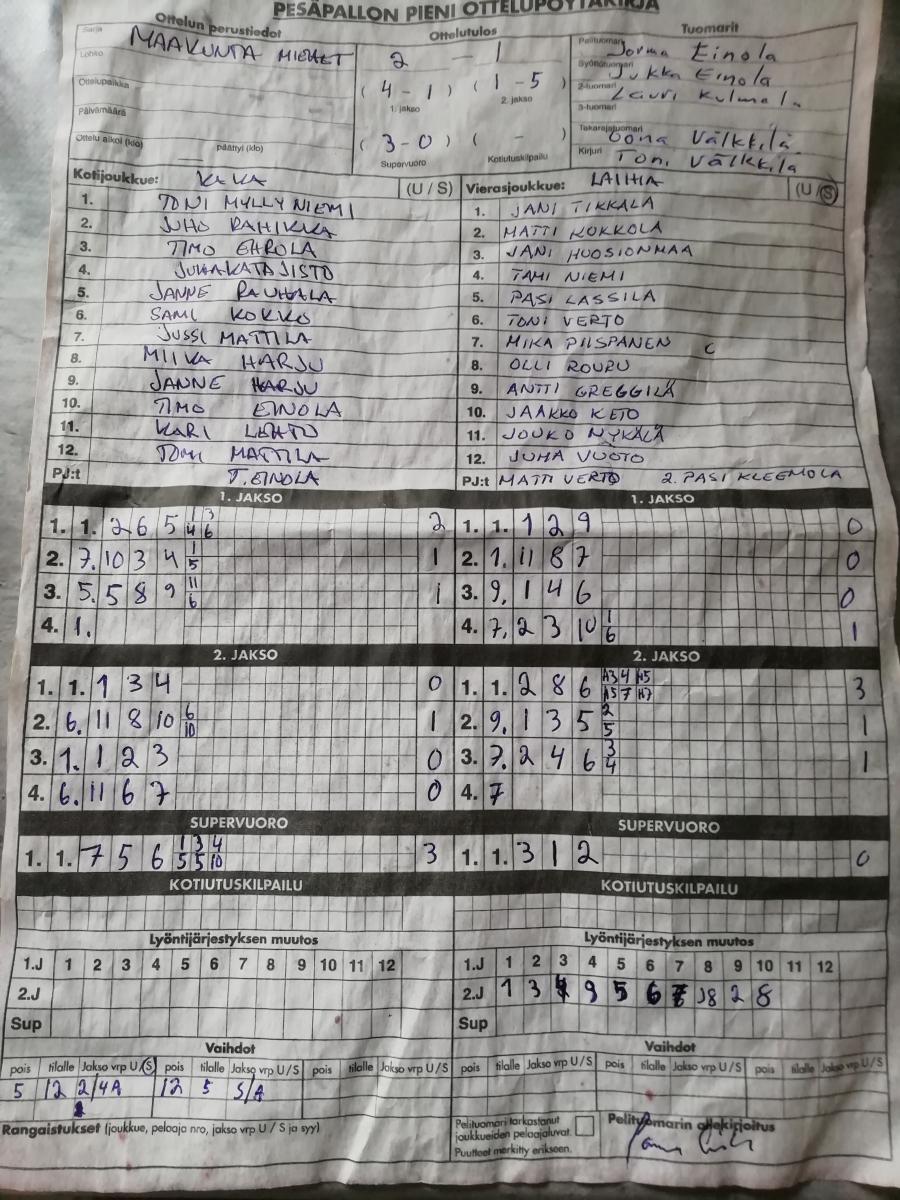 PESÄPALLON PIENI OTTELUPÖYTÄKIRJA
Ottelun perustiedot Ottelutulos Tuomarit
Sarja MAAKUNTA MIEHET
Lohko
Ottelupaikka
Päivämäärä
Ottelu alkoi (klo) päättyi (klo)
2 - 1
( 4 - 1 ) ( 1 - 5 )
1. jakso 2. jakso
( 3 - 0 ) ( - )
Supervuoro Kotiutuskilpailu
Pelituomari Jorma Einola
Syöttötuomari Jukka Einola
2-tuomari Lauri Kulmala
3-tuomari
Takarajatuomari Oona Välkkilä
Kirjuri Toni Välkkilä
Kotijoukkue: KAKA (U / S) Vierasjoukkue: LAIHIA (U / S)
1. TONI MYLLYNIEMI 1. JANI TIKKALA
2. JUHO RAHIKKA 2. MATTI KOKKOLA
3. TIMO EHROLA 3. JANI HUOSIONMAA
4. JUHA KATAJISTO 4. TAMI NIEMI
5. JANNE RAUHALA 5. PASI LASSILA
6. SAMI KOKKO 6. TONI VERTO
7. JUSSI MATTILA 7. MIKA PIISPANEN C
8. MIIKA HARJU 8. OLLI ROURU
9. JANNE HARJU 9. ANTTI GREGGILÄ
10. TIMO EINOLA 10. JAAKKO KETO
11. KARI LEHTO 11. JOUKO NYKÄLÄ
12. TOMI MATTILA 12. JUHA VUOTO
PJ:t T. EINOLA PJ:t MATTI VERTO 2. PASI KLEEMOLA
1. JAKSO 1. JAKSO
1. 1. 2 6 5 1/4 3/6 2 1. 1. 1 2 9 0
2. 7. 10 3 4 1/5 1 2. 1. 11 8 7 0
3. 5. 5 8 9 11/6 1 3. 9. 1 4 6 0
4. 1. 4. 7. 2 3 10 1/6 1
2. JAKSO 2. JAKSO
1. 1. 1 3 4 0 1. 1. 2 8 6 A3/A5 4/7 H5/H7 3
2. 6. 11 8 10 6/10 1 2. 9. 1 3 5 2/5 1
3. 1. 1 2 3 0 3. 7. 2 4 6 3/4 1
4. 6. 11 6 7 0 4. 7
SUPERVUORO SUPERVUORO
1. 1. 7 5 6 1/5 3/5 4/10 3 1. 1. 3 1 2 0
KOTIUTUSKILPAILU KOTIUTUSKILPAILU
Lyöntijärjestyksen muutos Lyöntijärjestyksen muutos
1.J 1 2 3 4 5 6 7 8 9 10 11 12 1.J 1 2 3 4 5 6 7 8 9 10 11 12
2.J 2.J 1 3 4 9 5 6 7 J8 2 8
Sup Sup
Vaihdot Vaihdot
pois tilalle Jakso vrp U/S pois tilalle Jakso vrp U/S pois tilalle Jakso vrp U/S pois tilalle Jakso vrp U/S pois tilalle Jakso vrp U/S pois tilalle Jakso vrp U/S
5 12 2/4A 12 5 S/A
Rangaistukset (joukkue, pelaaja nro, jakso vrp U / S ja syy)
Pelituomari tarkastanut
joukkueiden pelaajaluvat.
Puutteet merkitty erikseen.
Pelituomarin allekirjoitus